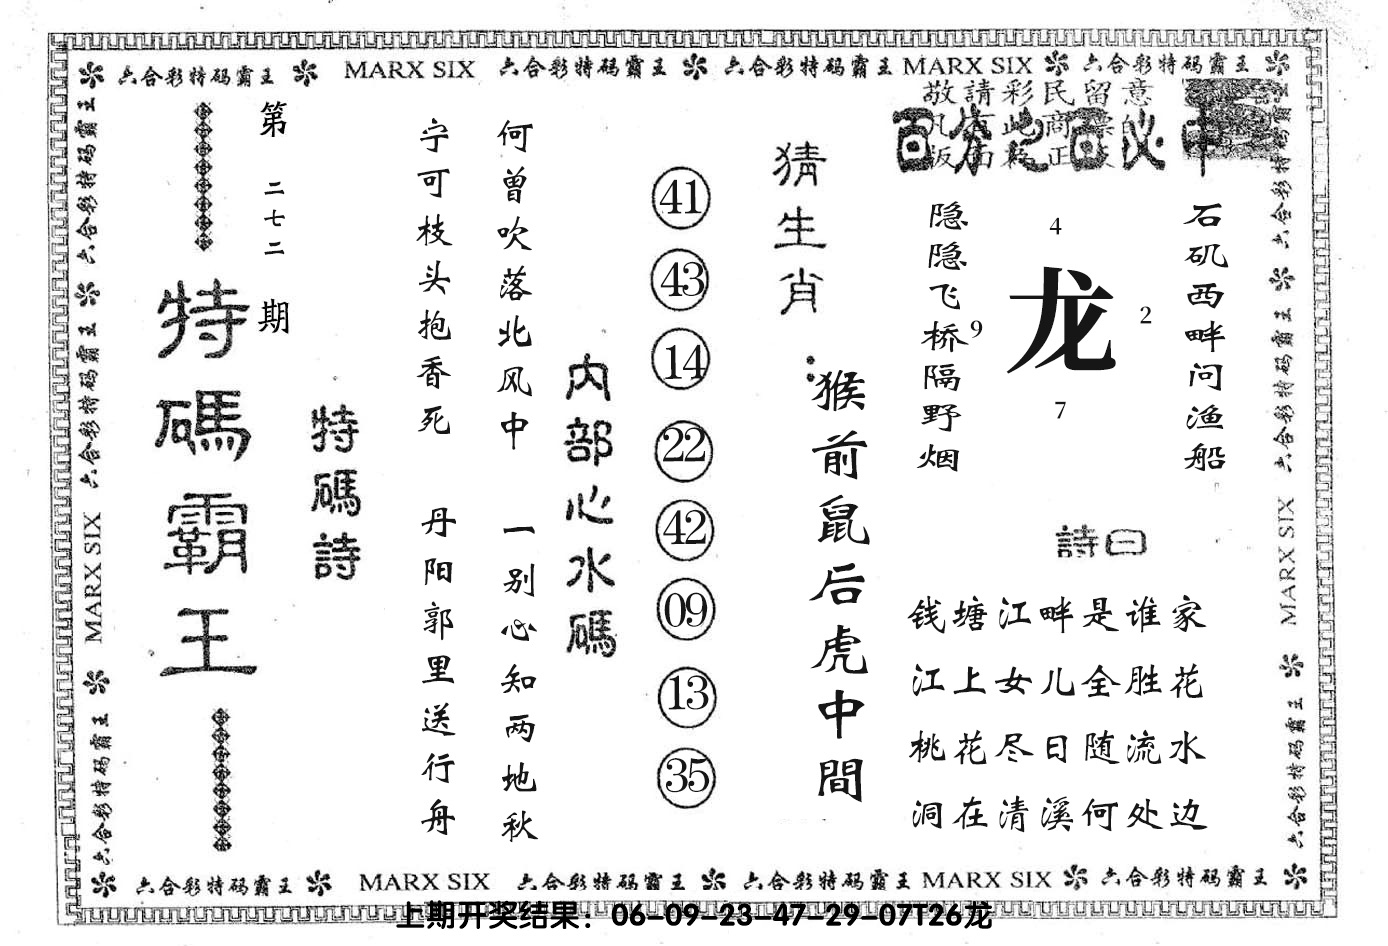 六合彩特码霸王 MARX SIX 六合彩特码霸王 六合彩特码霸王 MARX SIX 六合彩特码霸王
六合彩特码霸王 六合彩特码霸王 MARX SIX 六合彩特码霸王
第二七二期
特碼霸王
特碼詩
宁可枝头抱香死 丹阳郭里送行舟
何曾吹落北风中 一别心知两地秋
内部心水碼
41
43
14
22
42
09
13
35
猜生肖:
猴前鼠后虎中間
敬請彩民留意
百分之百必中
隐隐飞桥隔野烟
4
9
龙
2
7
石矶西畔问渔船
詩曰
钱塘江畔是谁家
江上女儿全胜花
桃花尽日随流水
洞在清溪何处边
六合彩特码霸王 六合彩特码霸王 MARX SIX 六合彩特码霸王
六合彩特码霸王 MARX SIX 六合彩特码霸王 六合彩特码霸王 MARX SIX 六合彩特码霸王
上期开奖结果：06-09-23-47-29-07T26龙